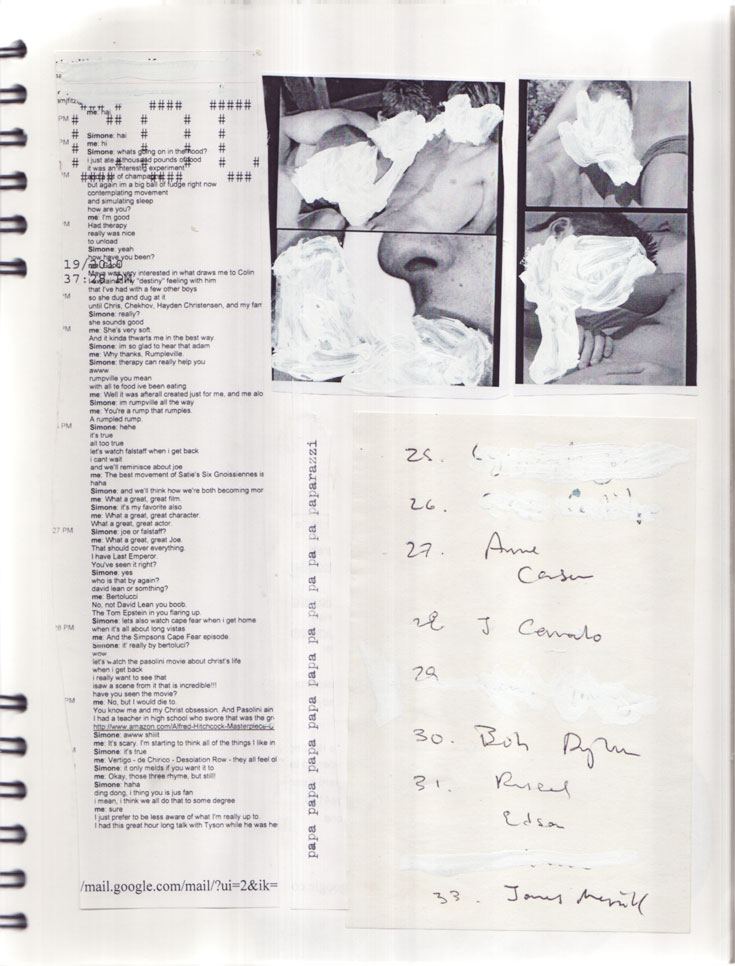 me: hai
Simone: hai
me: hi
Simone: whats going on in the hood?
i just ate a thousand pounds of food
it was an interestig experiment
but again im a big ball of fudge right now
contemplating movement
and simulating sleep
how are you?
me: I'm good
Had therapy
really was nice
to unload
Simone: yeah
how have you been?
19/2010
Maya was very interested in what draws me to Colin
37:28 PM
"destiny" feeling with him
that I've had with a few other boys
so she dug and dug at it
until Chris, Chekhov, Hayden Christensen, and my farr
Simone: really?
she sounds good
me: She's very soft.
And it kinda thwarts me in the best way.
Simone: im so glad to hear that adam
me: Why thanks, Rumpleville.
Simone: therapy can really help you
awww
rumpville you mean
with all te food ive been eating
me: Well it was afterall created just for me, and me alo
Simone: im rumpville all the way
me: You're a rump that rumples.
A rumpled rump.
Simone: hehe
it's true
all too true
let's watch falstaff when i get back
i cant wait
and we'll reminisce about joe
me: The best movement of Satie's Six Gnoissiennes is
haha
Simone: and we'll think how we're both becoming mor
me: What a great, great film.
Simone: it's my favorite also
me: What a great, great character.
What a great, great actor.
27 PM
Simone: joe or falstaff?
me: What a great, great Joe.
That should cover everything.
I have Last Emperor.
You've seen it right?
Simone: yes
who is that by again?
david lean or somthing?
me: Bertolucci
No, not David Lean you boob.
The Tom Epstein in you flaring up.
Simone: lets also watch cape fear when i get home
when it's all about long vistas
me: And the Simpsons Cape Fear episode.
Simone: it' really by bertoluci?
wow
let's watch the pasolini movie about christ's life
when i get back
i really want to see that
isaw a scene from it that is incredible!!!
have you seen the movie?
me: No, but I would die to.
You know me and my Christ obsession. And Pasolini ain
I had a teacher in high school who swore that was the gr
http://www.amazon.com/Alfred-Hitchcock-Masterpiece-C
Simone: awww shiiit
me: It's scary. I'm starting to think all of the things I like in
Simone: it's true
me: Vertigo - de Chirico - Desolation Row - they all feel ol
Simone: it only melds if you want it to
me: Okay, those three rhyme, but still!
Simone: haha
ding dong, i thing you is jus fan
i mean, i think we all do that to some degree
me: sure
I just prefer to be less aware of what I'm really up to.
I had this great hour long talk with Tyson while he was he
/mail.google.com/mail/?ui=2&ik=
papa papa papa papa papa papa pa pa pa paparazzi
25.
26.
27. Anne
Carson
28 J Cerrato
29
30. Bob Dylan
31. Russel
Edson
33. James Merrill